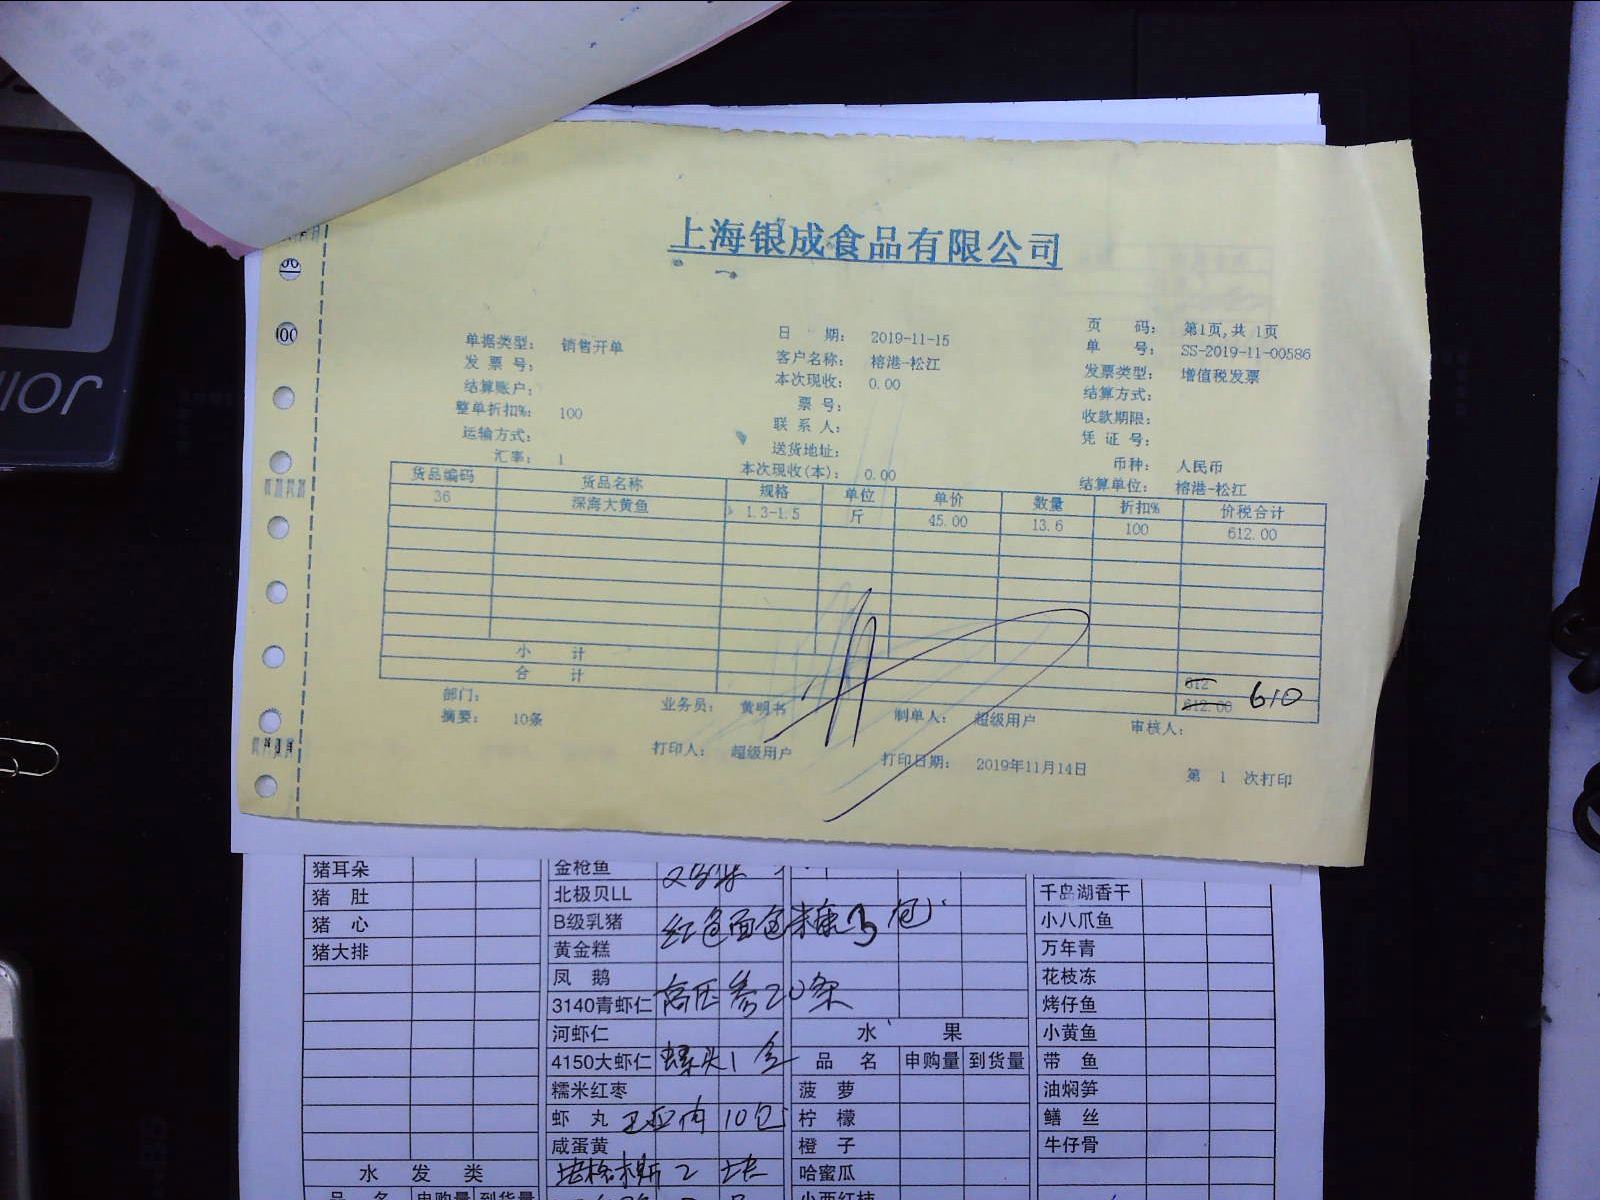 上海银成食品有限公司
单据类型: 销售开单 日 期: 2019-11-15 页 码: 第1页,共 1页
发 票 号: 客户名称: 榕港-松江 单 号: SS-2019-11-00586
结算账户: 本次现收: 0.00 发票类型: 增值税发票
整单折扣%: 100 票 号: 结算方式:
运输方式: 联 系 人: 收款期限:
汇率: 1 送货地址: 凭 证 号:
本次现收(本): 0.00 币种: 人民币
结算单位: 榕港-松江
货品编码 货品名称 规格 单位 单价 数量 折扣% 价税合计
36 深海大黄鱼 1.3-1.5 斤 45.00 13.6 100 612.00
小 计 612
合 计 612.00 610
部门: 业务员: 黄明书 制单人: 超级用户 审核人:
摘要: 10条
打印人: 超级用户 打印日期: 2019年11月14日 第 1 次打印
猪耳朵 金枪鱼
猪 肚 北极贝LL 千岛湖香干
猪 心 B级乳猪 红色面包糠3包 小八爪鱼
猪大排 黄金糕 万年青
凤 鹅 花枝冻
3140青虾仁 高压参20条 烤仔鱼
河虾仁 水 果 小黄鱼
4150大虾仁 螺头1盒 品 名 申购量 到货量 带 鱼
糯米红枣 菠 萝 油焖笋
虾 丸 10包 柠 檬 鳝 丝
咸蛋黄 橙 子 牛仔骨
水 发 类 2 块 哈蜜瓜
品 名 申购量 到货量 小西红柿
JOINI